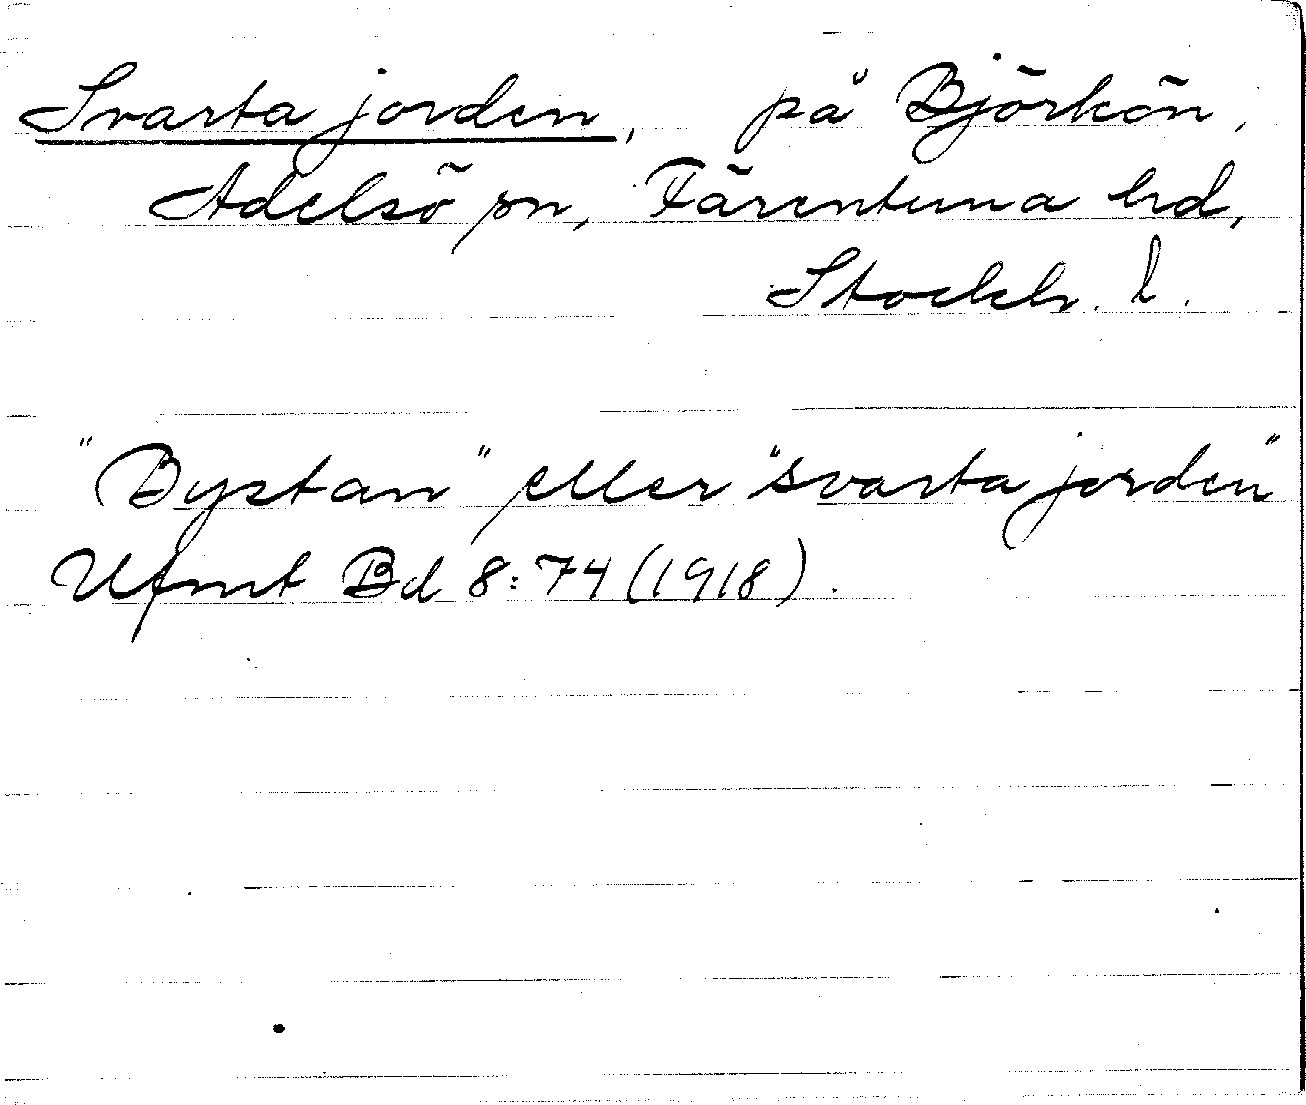 Svarta jorden, på Björkön,
Adelsö sn, Färentuna hd,
Stockh. l.
"Bystan" eller "svarta jorden"
Ufmt Bd 8:74 (1918).